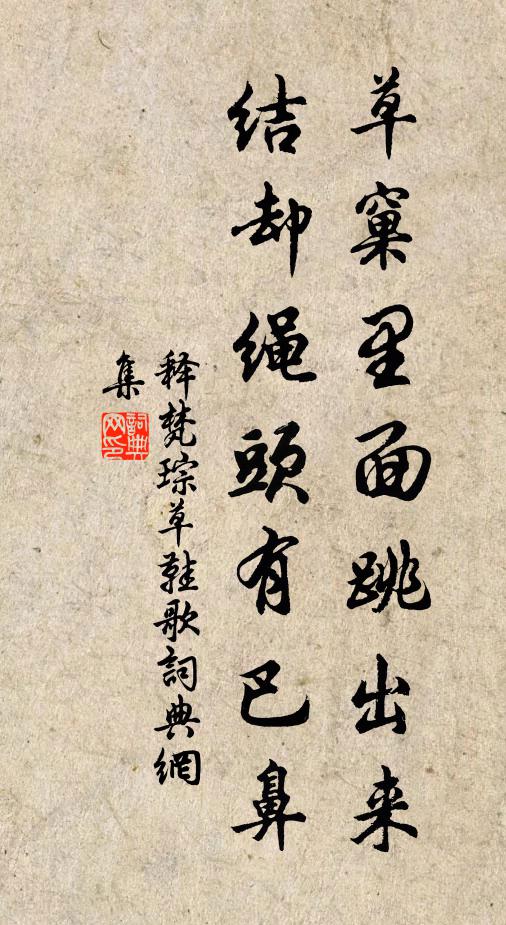 草窠里面跳出来
结却绳頭有巴鼻
释梵琮草鞋歌詞典網
集
詞典网印